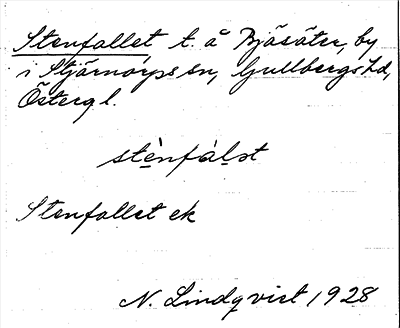 Stenfallet t. å Bjäsäter, by
i Stjärnorps sn, Gullbergs hd,
Östergl.
stènfàlət
Stenfallet ek
N. Lindqvist 1928